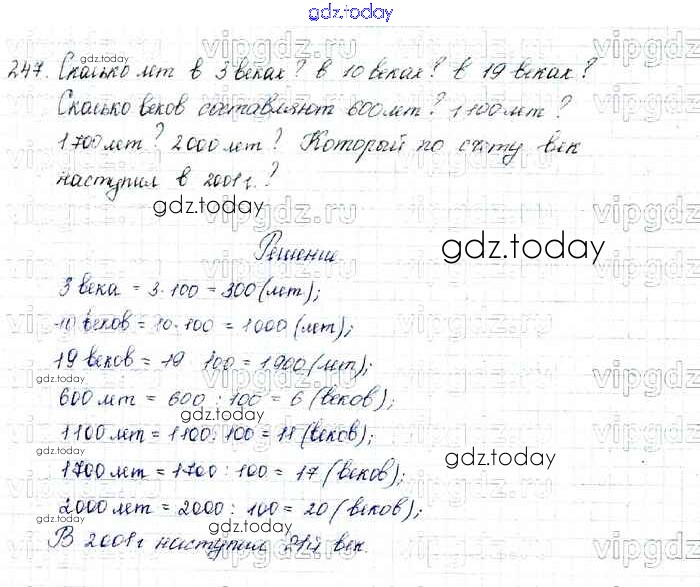 gdz.today
247. Сколько лет в 3 веках? в 10 веках? в 19 веках?
Сколько веков составляют 600 лет? 1100 лет?
1700 лет? 2000 лет? Который по счёту век
наступил в 2001 г.?
Решение.
3 века = 3·100 = 300 (лет);
10 веков = 10·100 = 1000 (лет);
19 веков = 19 100 = 1900 (лет);
600 лет = 600 : 100 = 6 (веков);
1100 лет = 1100 : 100 = 11 (веков);
1700 лет = 1700 : 100 = 17 (веков);
2000 лет = 2000 : 100 = 20 (веков);
В 2001 г наступил 21й век.
gdz.today
gdz.today
gdz.today
gdz.today
gdz.today
gdz.today
gdz.today
gdz.today
vipgdz.ru